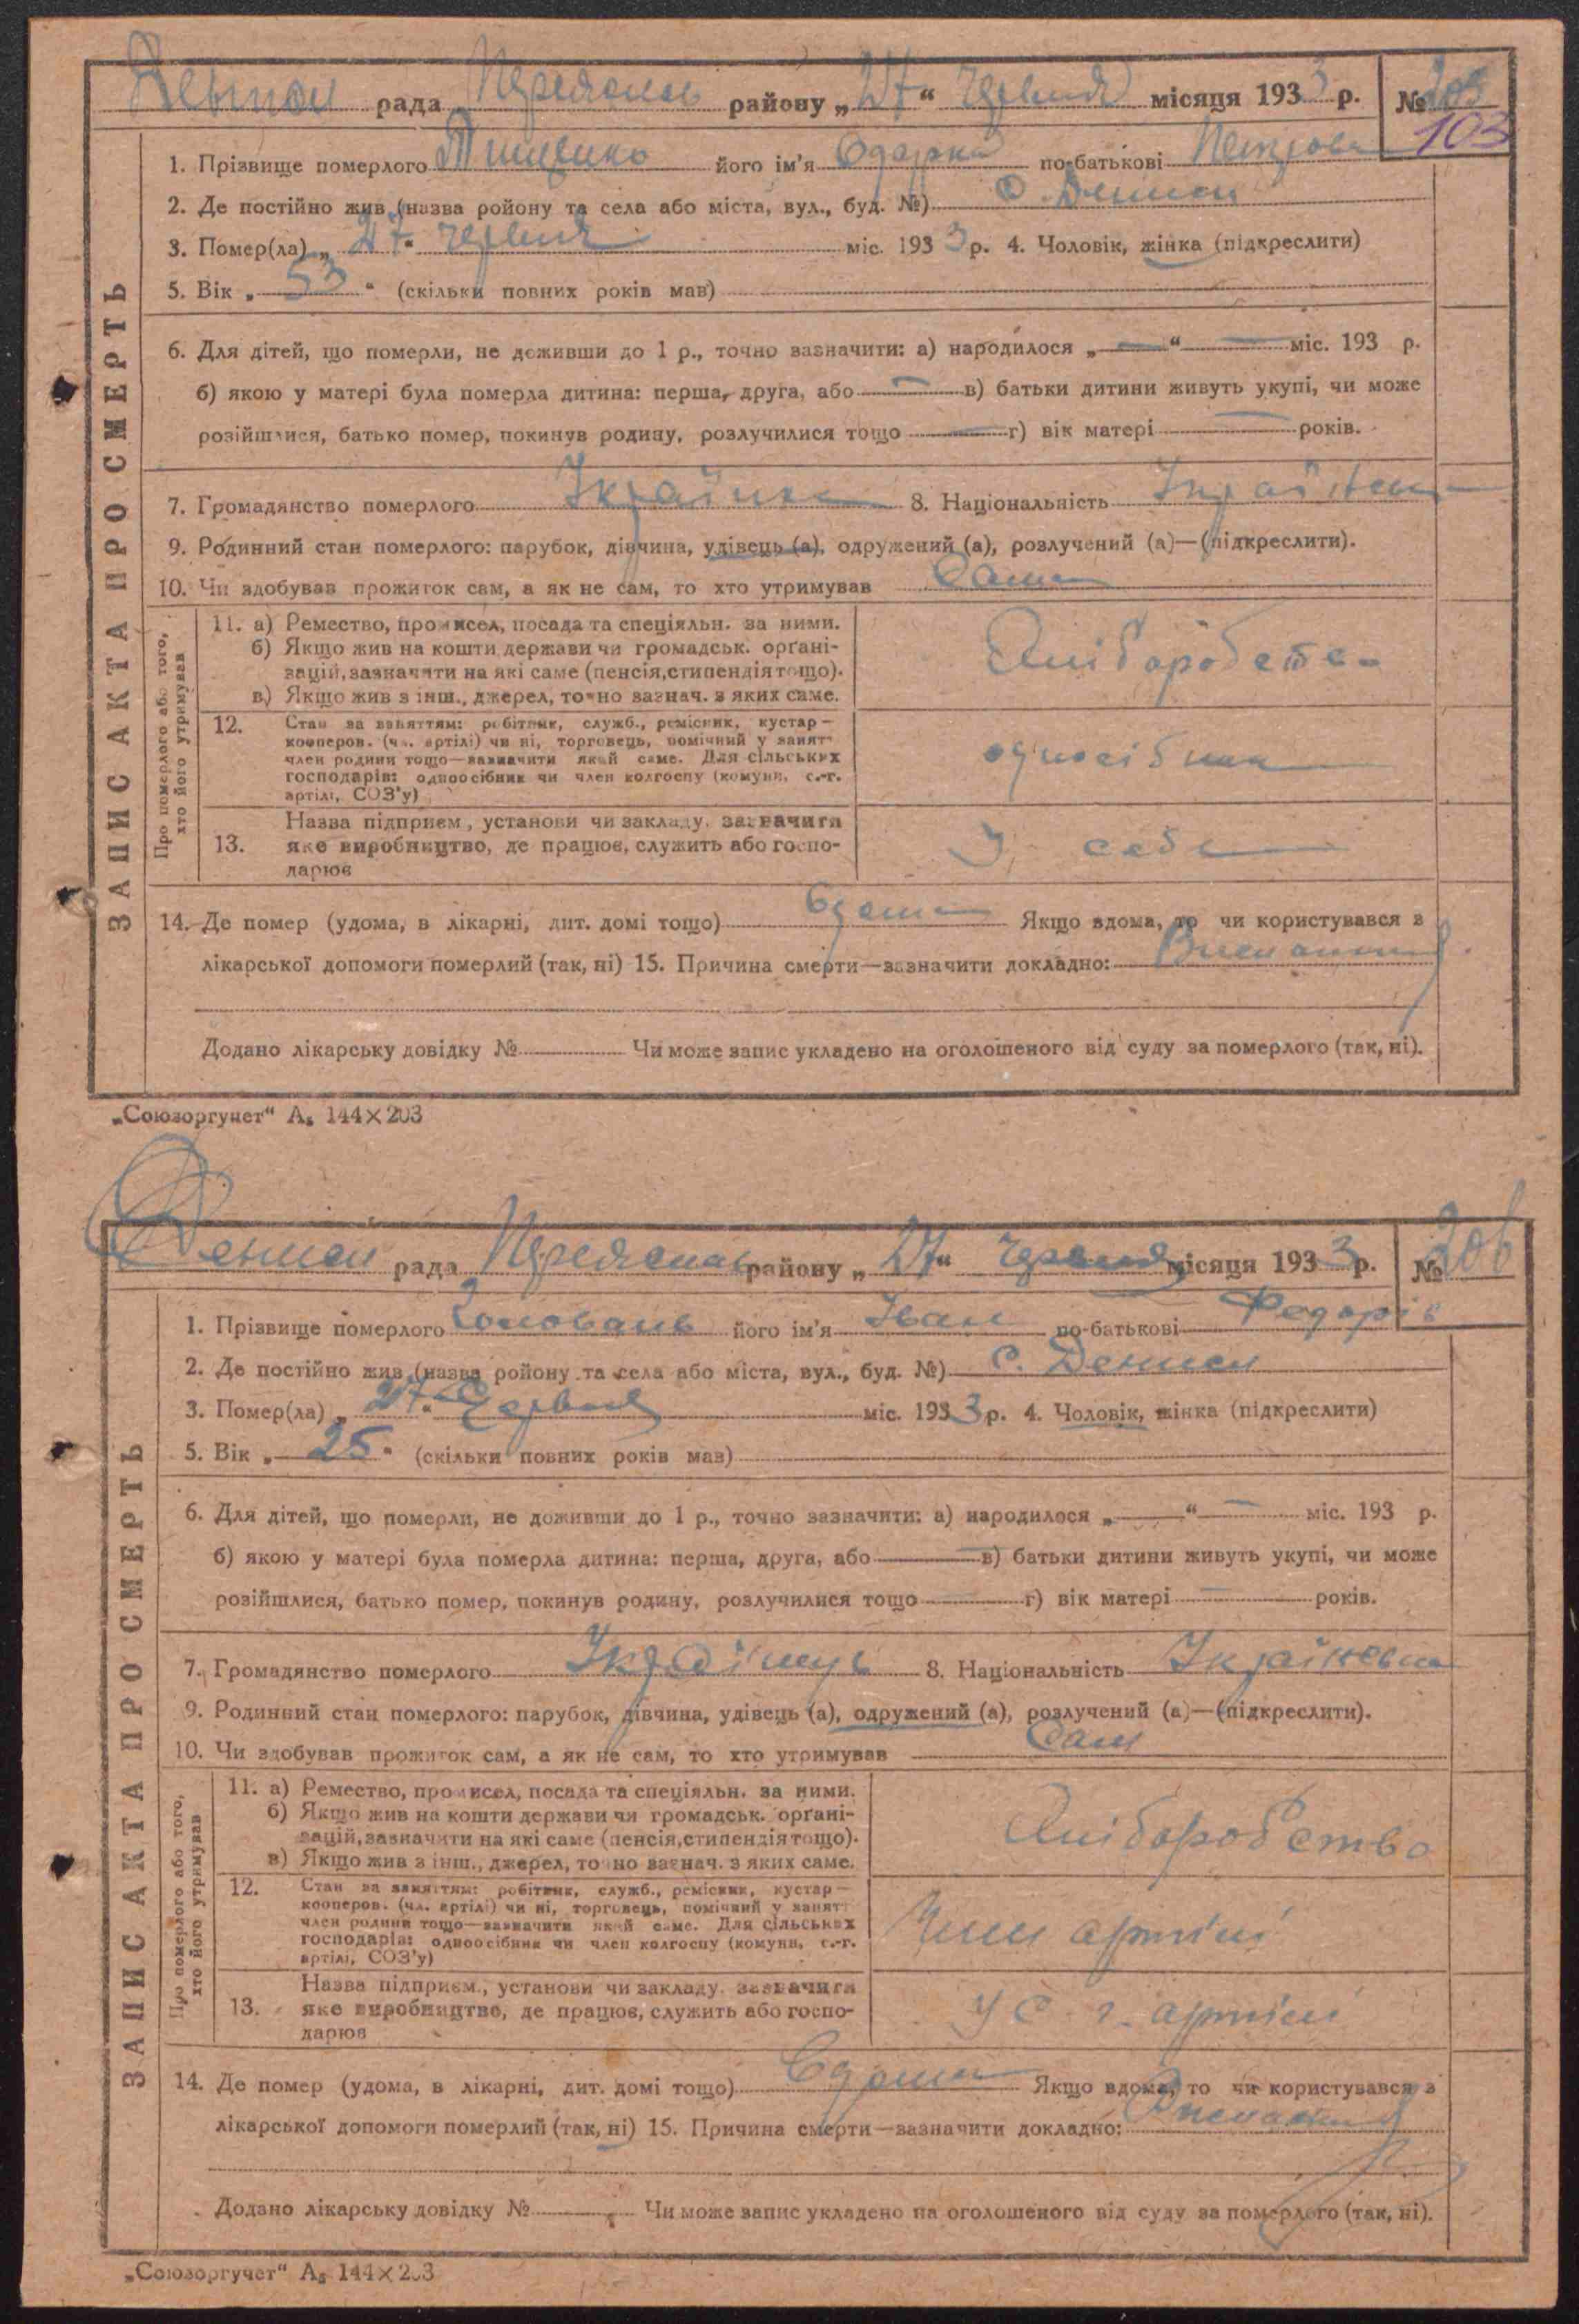 Дениси рада Переяслав району „27“ червня місяця 1933 р. № 205
103
1. Прізвище померлого Тищенко його ім'я Одарка по-батькові Петрова
2. Де постійно жив (назва ройону та села або міста, вул., буд. №) С. Дениси
3. Помер(ла) „27“ червня міс. 1933 р. 4. Чоловік, жінка (підкреслити)
5. Вік „53“ (скільки повних років мав)
6. Для дітей, що померли, не доживши до 1 р., точно зазначити: а) народилося „—“ — міс. 193 р.
б) якою у матері була померла дитина: перша, друга, або — в) батьки дитини живуть укупі, чи може
розійшлися, батько помер, покинув родину, розлучилися тощо — г) вік матері — років.
7. Громадянство померлого Українка 8. Національність
9. Родинний стан померлого: парубок, дівчина, удівець (а), одружений (а), розлучений (а)—(підкреслити).
10. Чи здобував прожиток сам, а як не сам, то хто утримував Сама
ЗАПИС АКТА ПРО СМЕРТЬ
Про померлого або того, хто його утримував
11. а) Ремество, промисел, посада та спеціяльн. за ними.
б) Якщо жив на кошти держави чи громадськ. орґані-
зацій, зазначити на які саме (пенсія, стипендія тощо).
в) Якщо жив з інш., джерел, точно зазнач. з яких саме.
Хліборобство
12. Стан за заняттям: робітник, служб., ремісник, кустар—
кооперов. (чл. артілі) чи ні, торговець, помічний у занятт
член родини тощо—зазначити який саме. Для сільських
господарів: одноосібник чи член колгоспу (комуни, с.-г.
артілі, СОЗ'у)
односібник
Назва підприєм., установи чи закладу, зазначити
13. яке виробництво, де працює, служить або госпо-
дарює
У себе
14. Де помер (удома, в лікарні, дит. домі тощо) Вдома Якщо вдома, то чи користувався з
лікарської допомоги померлий (так, ні) 15. Причина смерти—зазначити докладно: Виснаження
Додано лікарську довідку № Чи може запис укладено на оголошеного від суду за померлого (так, ні).
„Союзоргучет“ А₅ 144×203
Дениси рада Переяслав району „27“ червня місяця 1933 р. № 206
1. Прізвище померлого Головань його ім'я Іван по-батькові Федорів
2. Де постійно жив (назва ройону та села або міста, вул., буд. №) С. Дениси
3. Помер(ла) „27“ Червня міс. 1933 р. 4. Чоловік, жінка (підкреслити)
5. Вік „25“ (скільки повних років мав)
6. Для дітей, що померли, не доживши до 1 р., точно зазначити: а) народилося „—“ — міс. 193 р.
б) якою у матері була померла дитина: перша, друга, або — в) батьки дитини живуть укупі, чи може
розійшлися, батько помер, покинув родину, розлучилися тощо — г) вік матері — років.
7. Громадянство померлого Українець 8. Національність
9. Родинний стан померлого: парубок, дівчина, удівець (а), одружений (а), розлучений (а)—(підкреслити).
10. Чи здобував прожиток сам, а як не сам, то хто утримував Сам
ЗАПИС АКТА ПРО СМЕРТЬ
Про померлого або того, хто його утримував
11. а) Ремество, промисел, посада та спеціяльн. за ними.
б) Якщо жив на кошти держави чи громадськ. орґані-
зацій, зазначити на які саме (пенсія, стипендія тощо).
в) Якщо жив з інш., джерел, точно зазнач. з яких саме.
Хліборобство
12. Стан за заняттям: робітник, служб., ремісник, кустар—
кооперов. (чл. артілі) чи ні, торговець, помічний у занятт
член родини тощо—зазначити який саме. Для сільських
господарів: одноосібник чи член колгоспу (комуни, с.-г.
артілі, СОЗ'у)
Член артілі
Назва підприєм., установи чи закладу, зазначити
13. яке виробництво, де працює, служить або госпо-
дарює
У С. г. артілі
14. Де помер (удома, в лікарні, дит. домі тощо) Вдома Якщо вдома, то чи користувався з
лікарської допомоги померлий (так, ні) 15. Причина смерти—зазначити докладно: Виснаження
Додано лікарську довідку № Чи може запис укладено на оголошеного від суду за померлого (так, ні).
„Союзоргучет“ А₅ 144×203